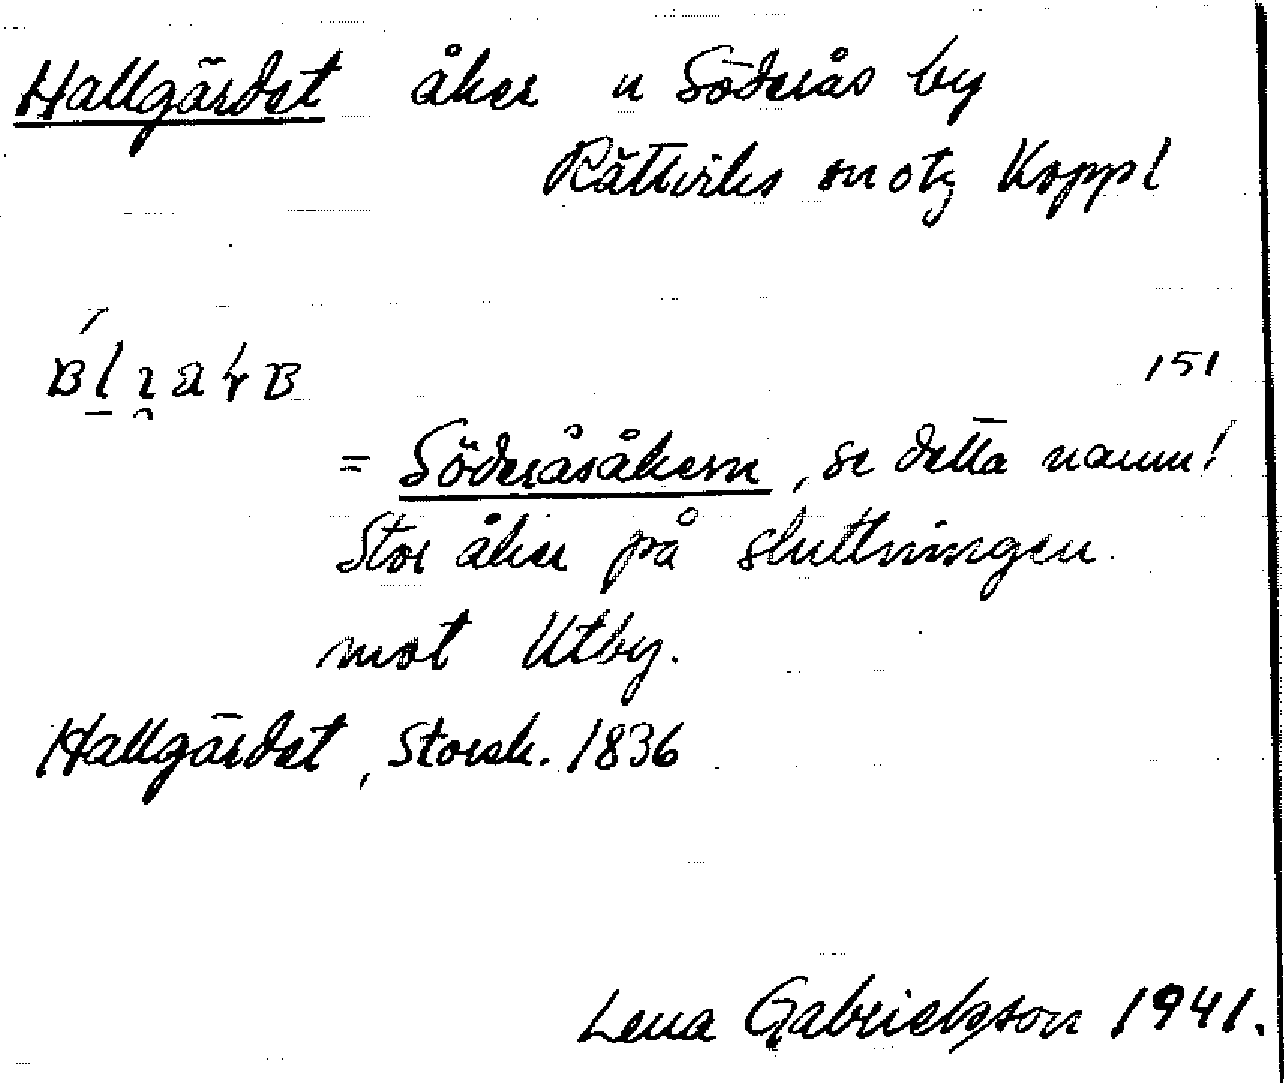 Hallgärdet åker u Söderås by
Rättviks sn otg Koppl
151
= Söderåsåkern, se detta namn!
Stor åker på sluttningen
mot Utby.
Hallgärdet, Storsk. 1836
Lena Gabrielsson 1941.